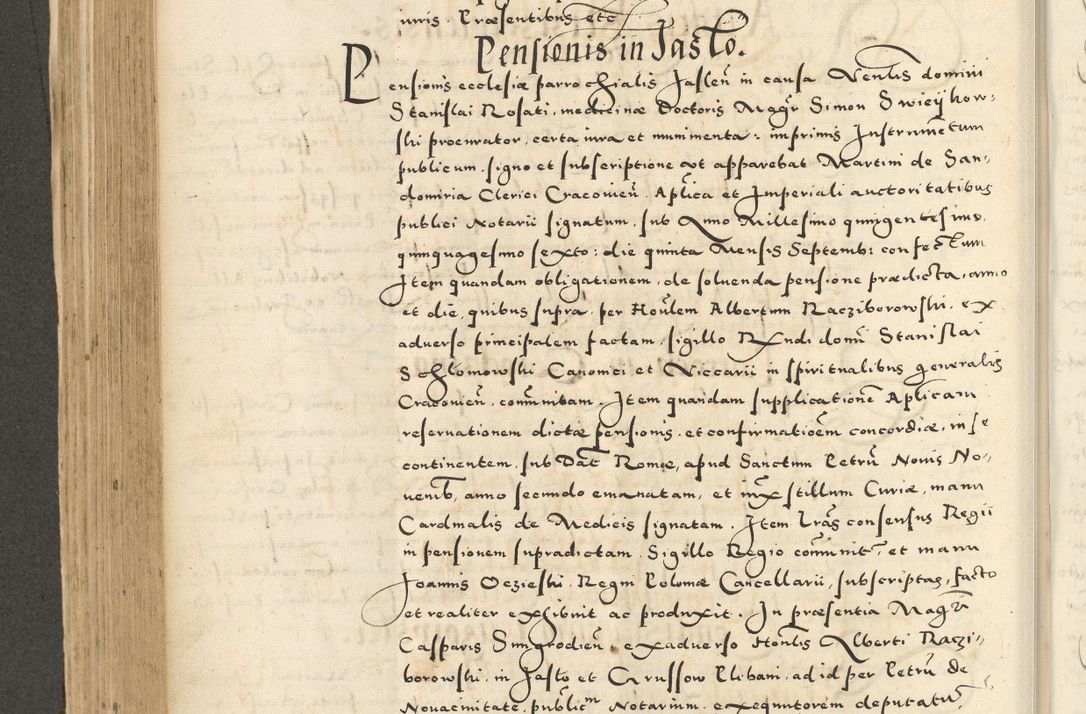 iuris. Præsentibus etc
Pensionis in Jasło.
Pensionis ecclesiæ parrochialis Jasleñ in causa Venlis domini
Stanislai Rosati, medicinæ Doctoris Magr Simon Swieÿkow-
ski procurator, certa iura et munimenta: imprimis Instrumētum
publicum, signo et subscriptione vt apparebat Martini de San-
domiria Clerici Cracovieñ, Aplica et Imperiali auctoritatibus
publici Notarii signatum, sub Anno Millesimo quingentesimo
quinquagesimo sexto: die quinta Mensis Septemb: confectum
Item quandam obligationem, de soluenda pensione prædicta, anno
et die, quibus supra, per Honlem Albertum Racziborowski, ex
aduerso principalem factam, sigillo Rxndi domi Stanislai
Schlomowski Canonici et Viccarii in spiritualibus generalis
Cracovieñ, comunitam. Item quandam supplicationē Aplicam
reseruationem dictæ pensionis, et confirmatioem concordiæ, in se
continentem, sub Dat Romæ, apud Sanctum Petrū Nonis No-
uemb, anno secundo emanatam, et iux stillum Curiæ, manu
Cardinalis de Medicis signatam. Item lras consensus Regii
in pensionem supradictam, Sigillo Regio comunit, et manu
Joannis Oczieski, Regni Poloniæ Cancellarii, subscriptas, facto
et realiter exhibuit ac produxit. In præsentia Magri
Casparis Smigrodieñ, exaduerso Honlis Alberti Raczi-
borowski, in Jasło et Grussow Plebani, ad id per Petrū de
Nouacinitate, publicm Notarium, exequutorem deputatū